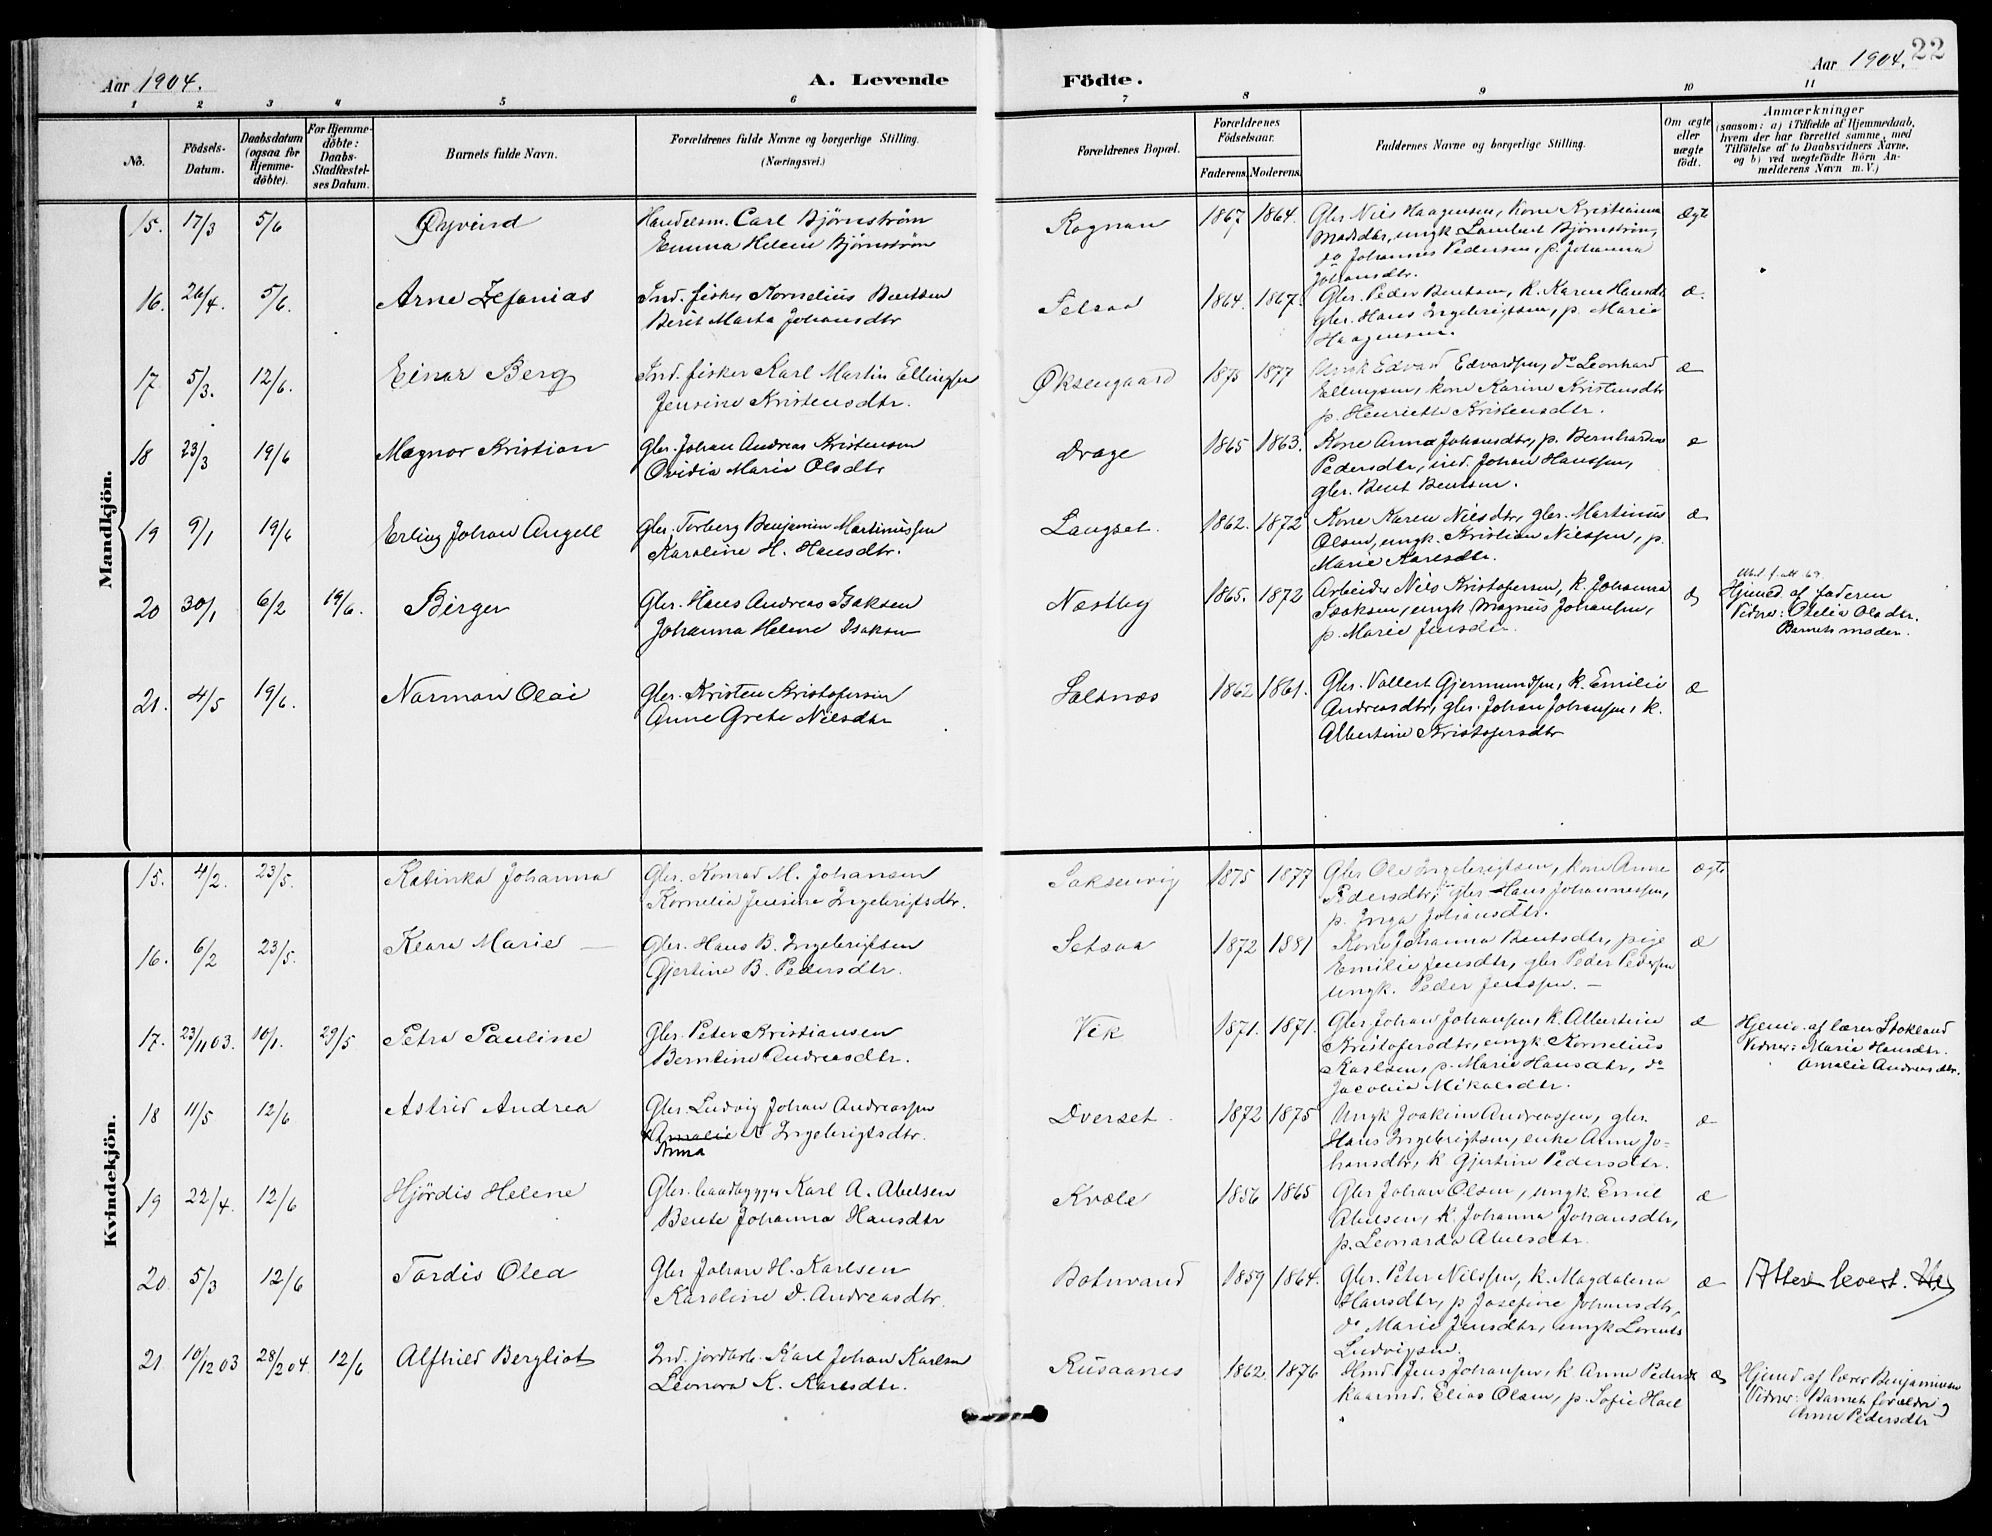 Aar 1904.
A. Levende
Födte.
Aar 1904.
22
1 2 3 4 5 6 7 8 9 10 11
No.
Födsels-Datum.
Daabsdatum (ogsaa for Hjemme-döbte).
For Hjemme-döbte: Daabs-Stadfæstel-ses Datum.
Barnets fulde Navn.
Forældrenes fulde Navne og borgerlige Stilling.
(Næringsvei.)
Forældrenes Bopæl.
Forældrenes Födselsaar.
Faderens. Moderens.
Faddernes Navne og borgerlige Stilling.
Om ægte eller uægte födt.
Anmærkninger
(saasom: a) i Tilfælde af Hjemmedaab,
hvem der har forrettet samme, med
Tilföielse af to Daabsvidners Navne,
og b) ved uægtefödte Börn An-
melderens Navn m. V.)
Mandkjön.
15. 17/3 5/6 Øyvind
Handelsm. Carl Bjørnstrøm
Emma Helene Bjørnstrøm
Rognan 1867 1864.
Gbr. Nils Haagensen, kone Kristianna
Madsdtr, ungk Lambert Bjørnstrøm,
do Johannes Pedersen, p. Johanna
Johansdtr.
ægte
16. 26/4. 5/6. Arne Zefanias
Ind. fisker Kornelius Bentsen
Berit Marta Johansdtr
Setsaa 1864. 1867.
Gbr. Peder Bentsen, k. Karen Hansdtr
gbr. Hans Ingebrigtsen, p. Marie
Haagensen.
æ.
17. 5/3. 12/6. Einar Berg
Ind. fisker Karl Martin Ellingsen
Jensine Kristensdtr.
Øksengaard 1875 1877
Ungk Edvard Edvardsen, do Leonhard
Ellingsen, kone Karine Kristensdtr
p. Henriette Kristensdtr.
æ
18 23/3 19/6 Magnor Kristian
Gbr. Johan Andreas Kristensen
Ovidia Marie Olsdtr
Drage 1865 1863.
Kone Anna Johansdtr, p. Bernhardine
Pedersdtr, ind. Johan Hanssen,
gbr. Bent Bentsen.
æ
19 9/1 19/6 Erling Johan Angell
Gbr. Torberg Benjamin Martinussen
Karoline H. Hansdtr.
Langset. 1862. 1872
Kone Karen Nilsdtr, gbr. Martinus
Olsen, ungk. Kristian Nilssen, p.
Marie Karlsdtr.
æ
20 30/1 6/2 19/6. Birger
Gbr. Hans Andreas Isaksen
Johanna Helene Isaksen
Næstby 1865. 1872
Arbeider Nils Kristofersen, k. Johanna
Isaksen, ungk Magnus Johansen,
p. Marie Jensdtr.
æ
Hjemd. af faderen
Vidner: Otelia Olsdtr.
Barnets moder.
21. 4/5 19/6. Norman Olai
Gbr. Kristen Kristofersen
Anne Grete Nilsdtr
Saltnæs 1862 1861.
Gbr. Vollert Gjermundsen, k. Emilie
Andreasdtr, gbr. Johan Johansen, k.
Albertine Kristofersdtr
æ
Kvindekjön.
15. 4/2. 23/5. Katinka Johanna
Gbr. Konrad M. Johansen
Kornelia Jensine Ingebrigtsdtr.
Saksenvig 1875 1877
Gbr Ole Ingebrigtsen, kone Anne
Pedersdtr, gbr Hans Johannessen,
p. Inga Johansdtr.
ægte
16. 6/2 23/5. Klara Marie
Gbr. Hans B. Ingebrigtsen
Gjertine B. Pedersdtr.
Setsaa 1872 1881
Kone Johanna Bentsdtr, pige
Emilie Jensdtr, gbr Peder Pedersen
ungk. Peder Jenssen. —
æ
17. 23/11 03. 10/1. 29/5 Petra Pauline
Gbr. Peter Kristiansen
Berntine Andreasdtr.
Vik 1871. 1871.
Gbr Johan Johansen, k. Albertine
Kristofersdtr, ungk Kornelius
Karlsen, p. Marie Hansdtr, do
Jacobia Mikalsdtr.
æ
Hjemd. af lærer Stokland
Vidner: Marie Hansdtr.
Amalie Andreasdtr.
18 11/5 12/6 Astrid Andrea
Gbr. Ludvig Johan Andreassen
Amalie N Ingebrigtsdtr.
Anna
Dverset. 1872 1875
Ungk Joakim Andreassen, gbr.
Hans Ingebrigtsen, enke Anne Jo-
hansdtr, k Gjertine Pedersdtr.
æ
19 22/4. 12/6 Hjördis Helene
Gbr. baadbygger Karl A. Abelsen
Berete Johanna Hansdtr
Kvæle 1856 1865
Gbr Johan Olsen, ungk. Emil
Abelsen, k. Johanna Johansdtr,
p. Leonarda Abelsdtr.
æ
20 5/3 12/6 Tordis Olea
Gbr Johan H. Karlsen
Karoline D. Andreasdtr.
Botnvand 1859 1864.
Gbr. Peter Nilssen, k. Magdalena
Hansdtr, p Josefine Johansdtr,
do Marie Jensdtr, ungk Lorents
Ludvigsen.
æ
21 10/12 03 28/2 04. 12/6 Alfhild Bergliot
Ind. jordarb. Karl Johan Karlsen
Leonora K. Karlsdtr.
Rusaanes 1862 1876
Hmd Jens Johansen, k Anne Pedersd
kaarmd. Elias Olsen, p. Sofie Hoel
æ
Hjemd af lærer Benjaminsen
Vidner: Barnets forældre og
Anne Pedersdtr